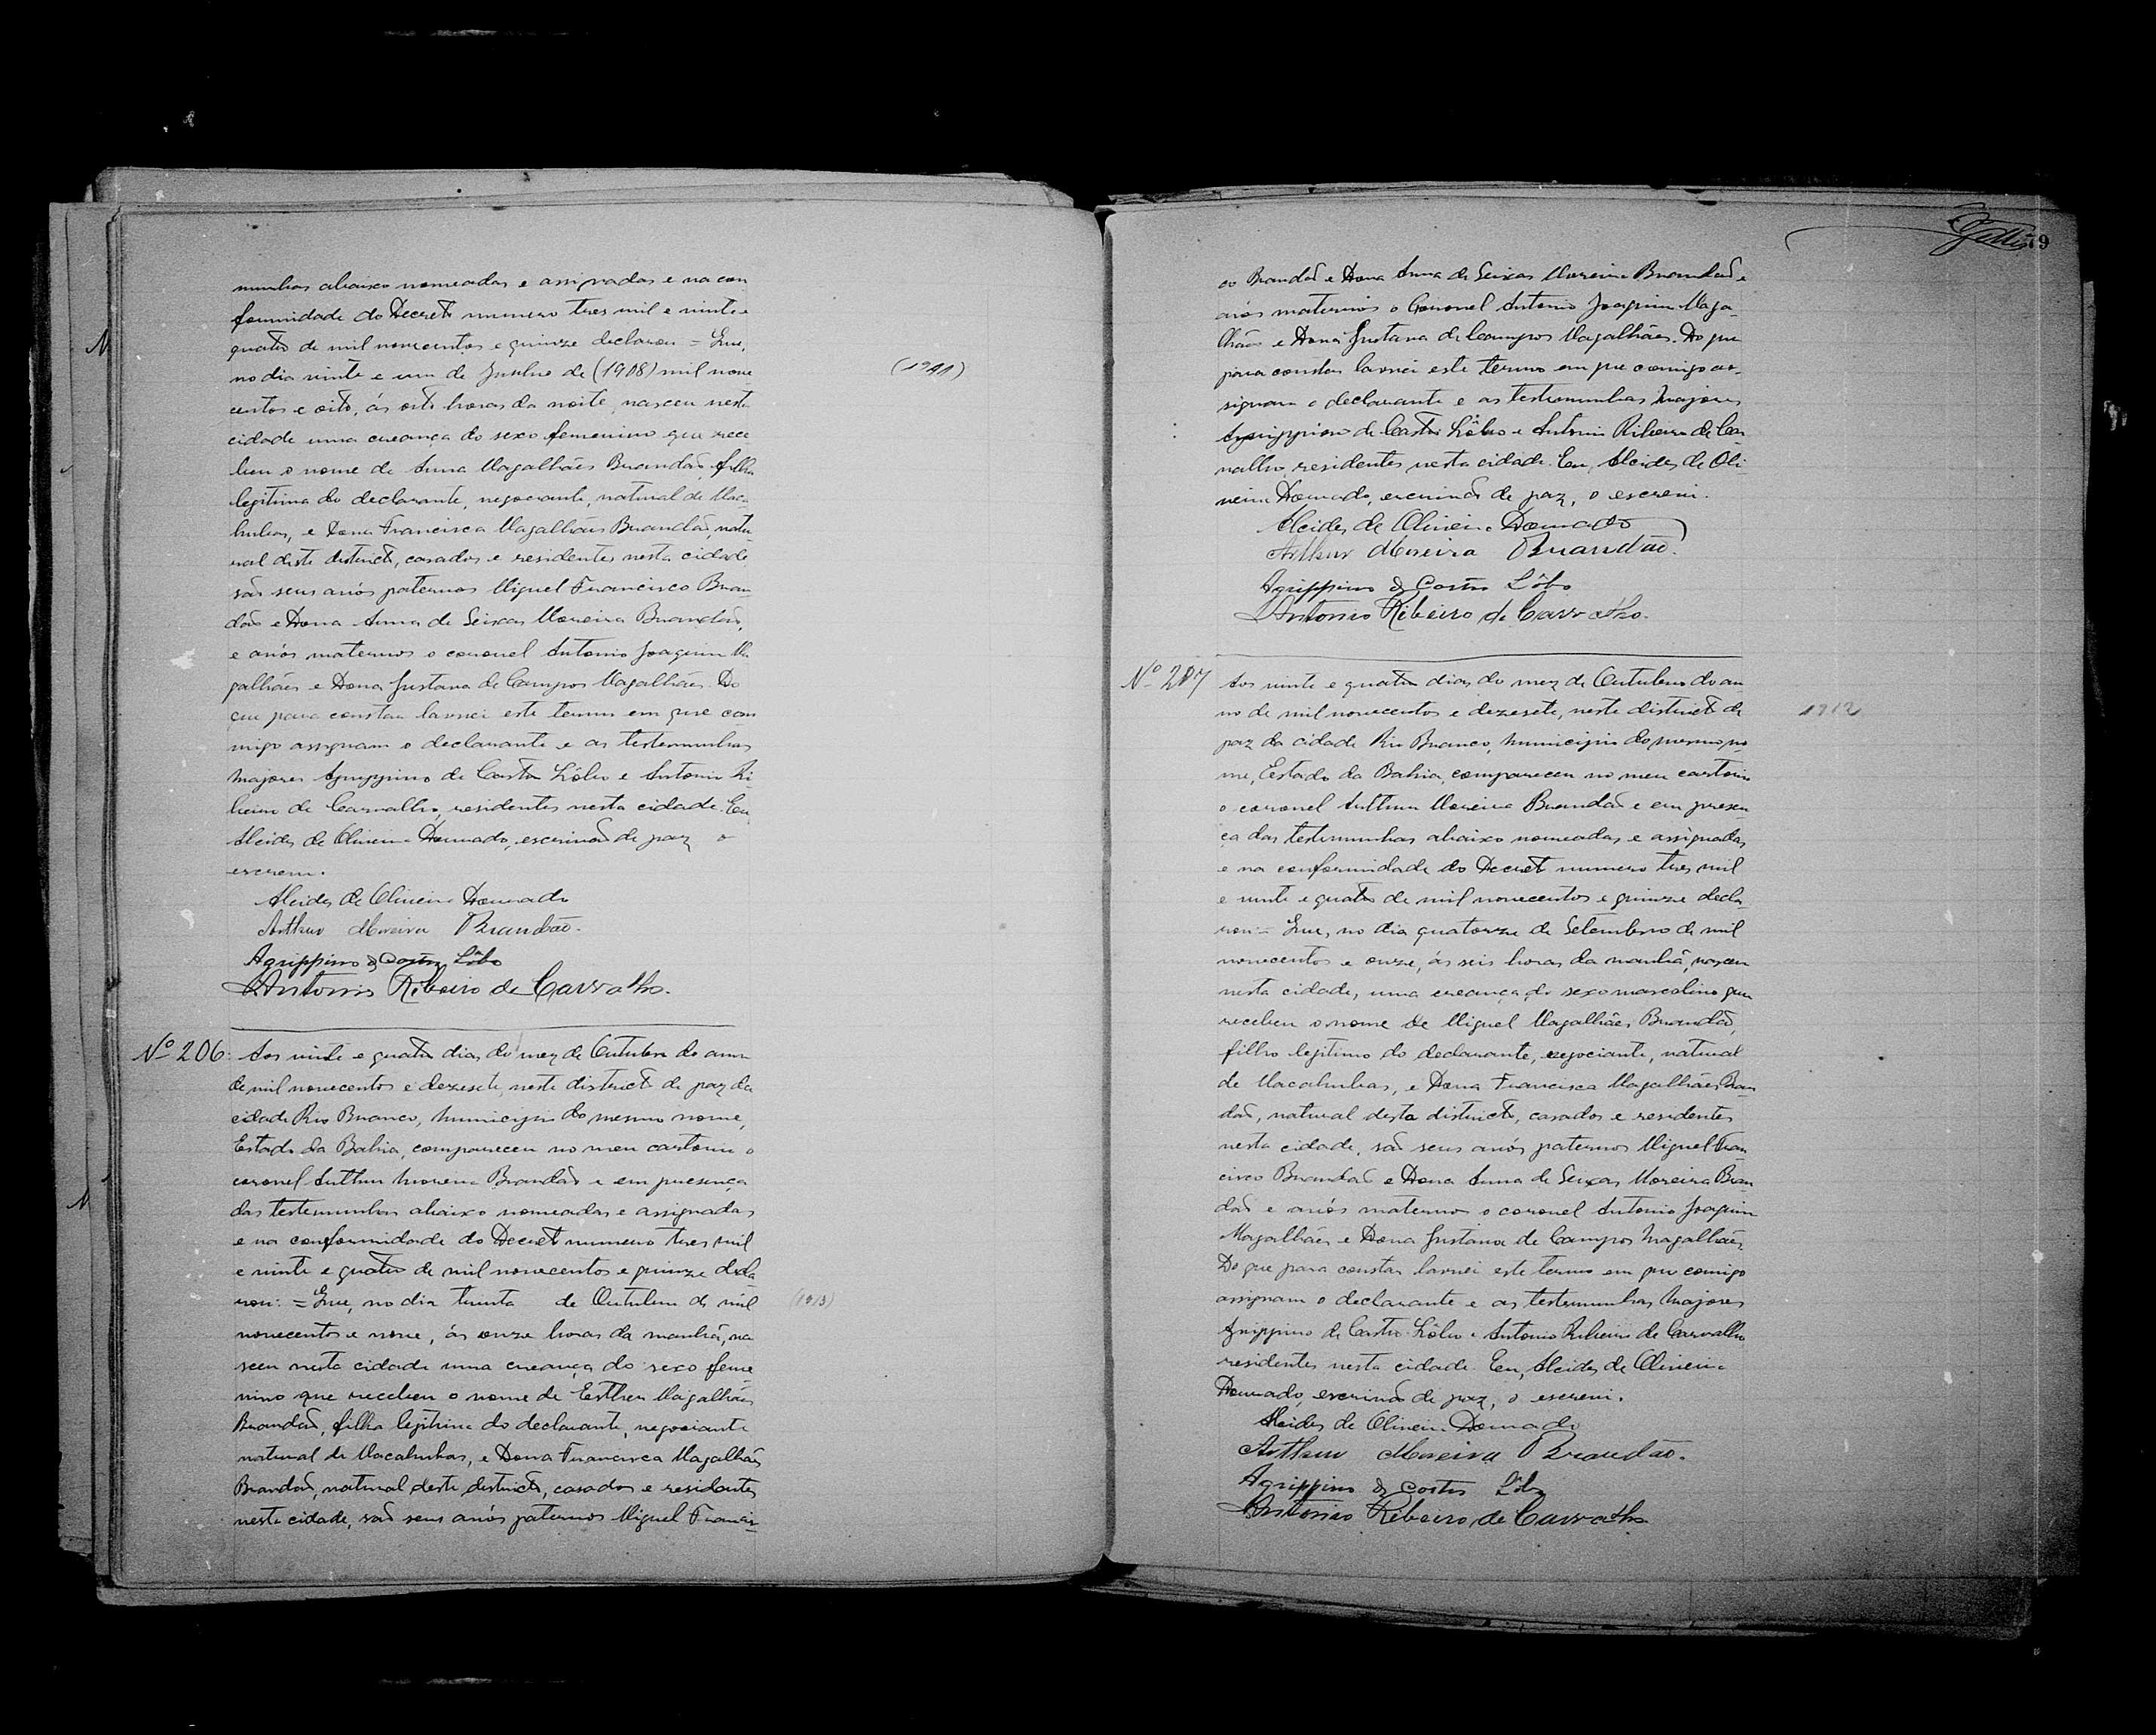 munhas abaixo nomeadas e assignadas e na con
formidade do Decreto numero tres mil e vinte e
quatro de mil novecentos e quinze declarou = Que,
no dia vinte e um de Junho de (1908) mil nove
centos e oito, ás oito horas da noite, nasceu nesta
cidade uma creança do sexo femenino que rece
beu o nome de Anna Magalhães Brandão, filha
legitima do declarante, negociante, natural de Maca
hubas, e Dona Francisca Magalhães Brandão, natu
ral deste districto, casados e residentes nesta cidade,
são seus avós paternos Miguel Francisco Bran
dão e Dona Anna de Seixas Moreira Brandão,
e avós maternos o coronel Antonio Joaquim Ma
galhães e Dona Justana de Campos Magalhães. Do
que para constar lavrei este termo em que com
migo assignam o declarante e as testemunhas
majores Agrippino de Castro Lôbo e Antonio Ri
beiro de Carvalho, residentes nesta cidade. Eu
Alcides de Oliveira Dourado, escrivão de paz o
escrevi.
Alcides de Oliveira Dourado
Arthur Moreira Brandão.
Agrippino de Castro Lôbo
Antonio Ribeiro de Carvalho.
Nº 206: Aos vinte e quatro dias do mez de Outubro do anno
de mil novecentos e dezesete, neste districto de paz da
cidade Rio Branco, municipio do mesmo nome,
Estado da Bahia, compareceu no meu cartorio o
coronel Arthur Moreira Brandão e em presença
das testemunhas abaixo nomeadas e assignadas
e na conformidade do Decreto numero tres mil
e vinte e quatro de mil novecentos e quinze decla
rou: = Que, no dia trinta de Outubro de mil
novecentos e nove, ás onze horas da manhã, na
sceu nesta cidade uma creança do sexo feme
nino que recebeu o nome de Esther Magalhães
Brandão, filha legitima do declarante, negociante
natural de Macahubas, e Dona Francisca Magalhães
Brandão, natural deste districto, casados e residentes
nesta cidade, são seus avós paternos Miguel Francis-
79
co Brandão e Dona Anna de Seixas Moreira Brandão e
avós maternos o Coronel Antonio Joaquim Maga-
lhães e Dona Justana de Campos Magalhães. Do que
para constar lavrei este termo em que comigo as-
signam o declarante e as testemunhas majores
Agrippino de Castro Lôbo e Antonio Ribeiro de Car
valho residentes nesta cidade. Eu, Alcides de Oli
veira Dourado, escrivão de paz, o escrevi.
Alcides de Oliveira Dourado
Arthur Moreira Brandão.
Agrippino de Castro Lôbo
Antonio Ribeiro de Carvalho.
Nº 207 Aos vinte e quatro dias do mez de Outubro do an-
no de mil novecentos e dezesete, neste districto de
1912
paz da cidade Rio Branco, municipio do mesmo no
me, Estado da Bahia, compareceu no meu cartorio
o coronel Arthur Moreira Brandão e em presen
ça das testemunhas abaixo nomeadas e assignadas
e na conformidade do Decreto numero tres mil
e vinte e quatro de mil novecentos e quinze decla
rou: = Que, no dia quatorze de Setembro de mil
novecentos e onze, ás seis horas da manhã, nasceu
nesta cidade, uma creança do sexo mascolino que
recebeu o nome de Miguel Magalhães Brandão,
filho legitimo do declarante, negociante, natural
de Macahubas, e Dona Francisca Magalhães Bran
dão, natural desta districto, casados e residentes
nesta cidade, são seus avós paternos Miguel Fran
cisco Brandão e Dona Anna de Seixas Moreira Bran
dão e avós maternos o coronel Antonio Joaquim
Magalhães e Dona Justana de Campos Magalhães.
Do que para constar lavrei este termo em que comigo
assignam o declarante e as testemunhas majores
Agrippino de Castro Lôbo e Antonio Ribeiro de Carvalho
residentes nesta cidade. Eu, Alcides de Oliveira
Dourado, escrivão de paz, o escrevi.
Alcides de Oliveira Dourado
Arthur Moreira Brandão.
Agrippino de Castro Lôbo
Antonio Ribeiro de Carvalho